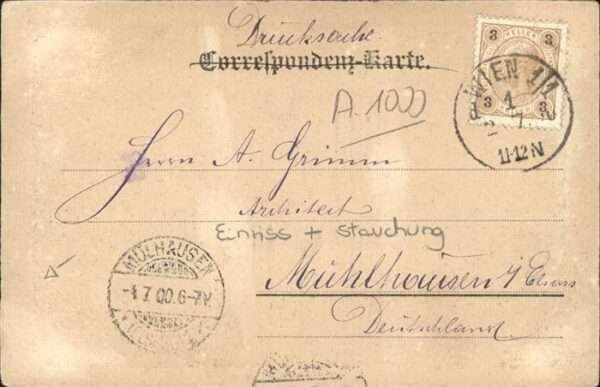 Drucksache
Correspondenz-Karte.
3 HELLER 3
3 3
WIEN 1/1
1
7
11-12N
A. 1000
Herrn A. Grimm
Architect
Einriss + Stauchung
Mühlhausen i/ Elsass
Deutschland.
MÜLHAUSEN
7 00.6-7N